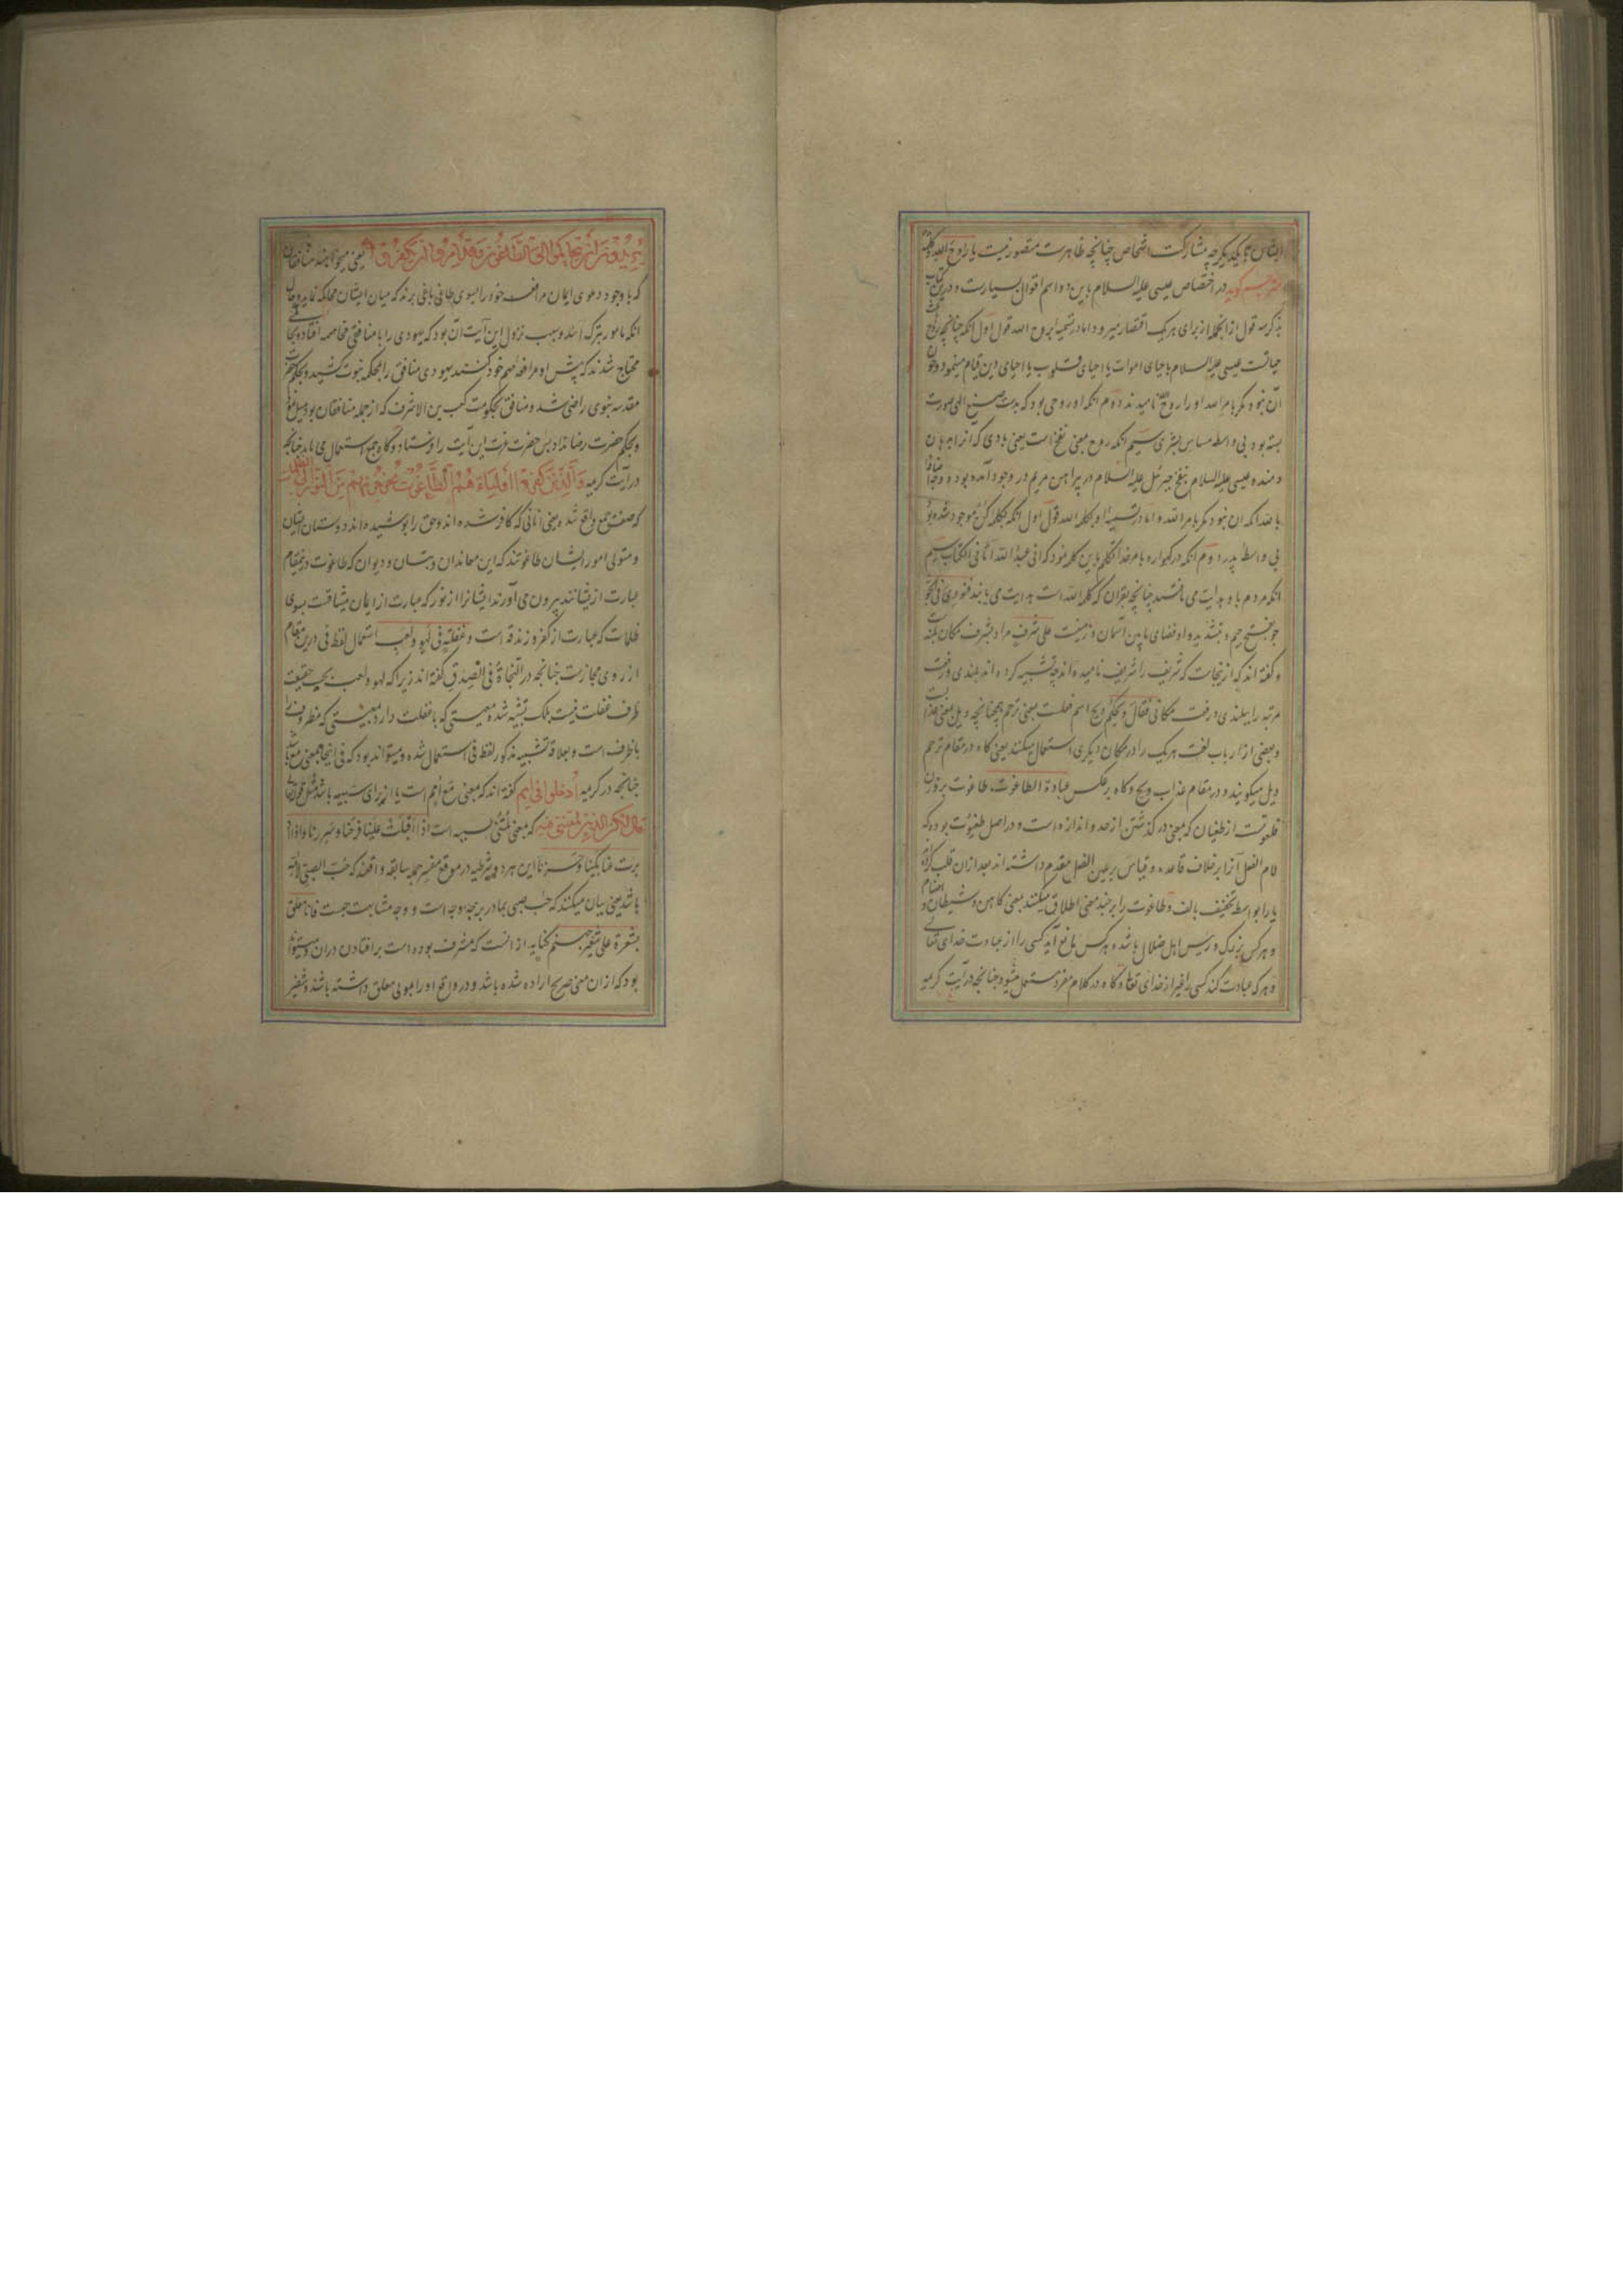 ایشان با یکدیگر چه مشارکت اشخاص چنانچه ظاهرست مقصور نیست یا روح الله و کلمة
مترجم گوید در اختصاص عیسی علیه السلام باین دو اسم اقوال بسیارست و درین کتاب
بذکر سه قول از انجمله از برای هر یک اقتصار میرود اما در تسمیه او بروح الله قول اول انکه چنانچه بروح
حیاتست عیسی علیه السلام باحیای اموات یا احیای قلوب یا احیای دین قیام مینمود و چون
آن نبود مگر بامر الله او را روح الله نامیدند دوم انکه او روحی بود که بدست صنع الهی صورت
بسته بود بی واسطه مساس بشری سیم انکه روح بمعنی نفخ است یعنی بادی که از
دمنده عیسی علیه السلام بنفخ جبرئیل علیه السلام در پیراهن مریم در وجود آمده بود و
بالله انکه ان نبود مگر بامر الله و اما در تسمیه او بکلمة الله قول اول انکه بکلمه کن موجود شده بود
بی واسطه پدر دوم انکه در کهواره بامر خدا تکلم باین کلمه نمود که انی عبد الله آتانی الکتاب سیم
انکه مردم باو هدایت می یافتند چنانچه بقران که کلمة الله است هدایت می یابند فنودی فی الجو
جو بفتح جیم و تشدید واو فضای مابین آسمان و زمینست علی شرف مراد بشرف مکان بلندست
و گفته اند که ازینجاست که شریف را شریف نامیده اند چه تشبیه کرده اند بلندی و رفعت
مرتبه را ببلندی و رفعت مکانی فقال ویحکم ویح اسم فعلست بمعنی ترحم همچنانچه ویل بمعنی عذابست
و بعضی از ارباب لغت هر یک را در مکان دیگری استعمال میکنند یعنی گاه در مقام ترحم
ویل میگویند و در مقام عذاب ویح و گاه برعکس عبادة الطاغوت طاغوت بر وزن
فلعوتست از طغیان که بمعنی در گذشتن از حد و اندازه است و در اصل طغیوت بوده که
لام الفعل آنرا برخلاف قاعده و قیاس بر عین الفعل مقدم داشته اند بعد ازان قلب کرده
یا را بواسطه تخفیف بالف و طاغوت را بر چند معنی اطلاق میکنند بمعنی کاهن و شیطان و اصنام
و هر کس بزرگ و رئیس اهل ضلال باشد و هر کس مانع آید کسی را از عبادت خدای تعالی
و هر که عبادت کند کسی را غیر از خدای تعالی و گاه در کلام مفرد مستعمل میشود چنانچه در آیت کریمه
یریدون ان یتحاکموا الی الطاغوت وقد امروا ان یکفروا به یعنی میخواهند منافقان
که با وجود دعوی ایمان مرافعه خود را بسوی طاغی باغی برند که میان ایشان محاکمه نماید و حال
انکه مامور بترک آنند و سبب نزول این آیت آن بود که یهودی را با منافقی مخاصمه افتاد و بجایی
محتاج شدند که پیش او مرافعه مهم خود کنند یهودی منافق را بمحکمه نبوت کشید و بحکم
مقدسه نبوی راضی شد و منافق بحکومت کعب بن الاشرف که از جمله منافقان بود میل نمود
و بحکم حضرت رضا نداد پس حضرت عزت این آیت را فرستاد و گاه جمع استعمال می یابد چنانچه
در آیت کریمه والذین کفروا اولیاءهم الطاغوت یخرجونهم من النور الی الظلمات
که صفت جمع واقع شده یعنی آنانی که کافر شده اند و حق را پوشیده اند دوستان ایشان
و متولی امور ایشان طاغوتند که این معاندان و بتان و دیوان که طاغوت درینمقام
عبارت ازیشانند بیرون می آورند ایشانرا از نور که عبارت از ایمان میثاقست بسوی
ظلمات که عبارت از کفر و زندقه است و غفلة فی لهو و لعب استعمال لفظ فی درین مقام
از روی مجازست چنانچه در النجاة فی الصدق گفته اند زیرا که لهو و لعب بحسب حقیقت
ظرف غفلت نیست بلکه تشبیه شده معیتی که با غفلت دارد بمعیتی که مظروف را
با ظرف است و بعلاقه تشبیه مذکور لفظ فی استعمال شده و میتواند بود که فی اینجا بمعنی مع باشد
چنانچه در کریمه ادخلوا فی امم گفته اند که بمعنی مع امم است یا از برای سببیه باشد مثل قوله تعالی
قالت فذلکن الذی لمتننی فیه که بمعنی لمتننی بسببه است اذا اقبلت علینا فرحنا و سررنا و اذا ادبرت
عنا بکینا و حزنا این هر دو شرطیه در موقع مفسر جمله سابقه واقعند که حب الصبی لامه
باشد یعنی بیان میکنند که حب صبی بمادر بر چه وجه است و وجه مشابهت چیست فانا معلق
بشعرة علی شفیر جهنم کنایه از انست که مشرف بوده است بر افتادن دران و میتواند
بود که ازان معنی صریح اراده شده باشد و در واقع او را بمویی معلق داشته باشند و شفیر